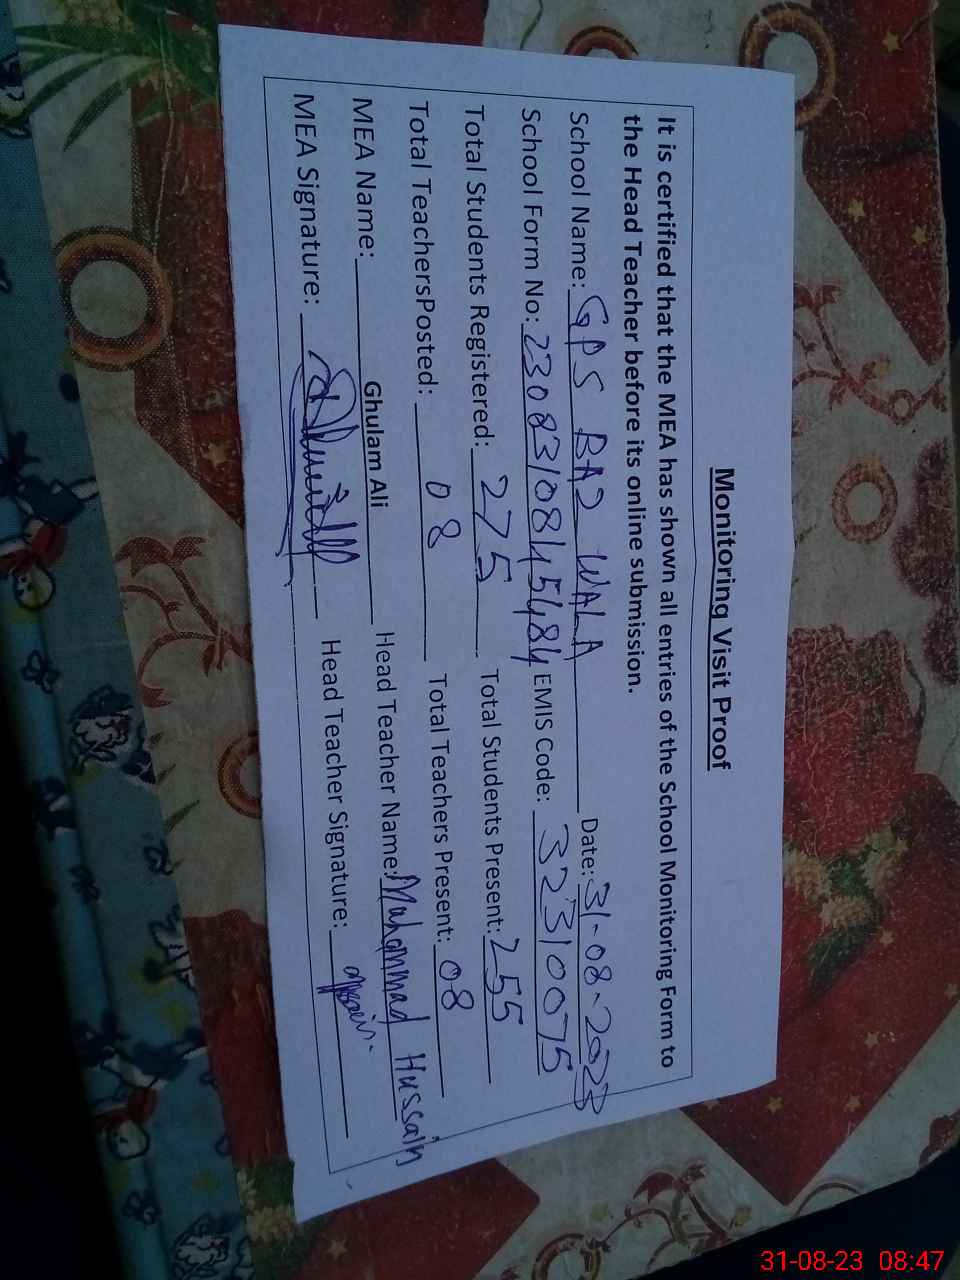 Monitoring Visit Proof
It is certified that the MEA has shown all entries of the School Monitoring Form to
the Head Teacher before its online submission.
School Name: GPS BAZ WALA Date: 31-08-2023
School Form No: 230831084 5484 EMIS Code: 32310075
Total Students Registered: 275 Total Students Present: 255
Total TeachersPosted: 08 Total Teachers Present: 08
MEA Name: Ghulam Ali Head Teacher Name: Muhammad Hussain
MEA Signature: Head Teacher Signature:
31-08-23 08:47